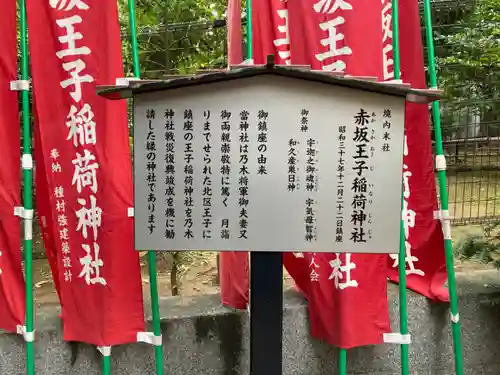 境内末社
赤坂王子稲荷神社
あかさかおうじいなりじんじゃ
昭和三十七年十二月二十二日鎮座
御祭神
宇迦之御魂神
宇気母智神
和久産巣日神
御鎮座の由来
当神社は乃木将軍御夫妻又
御両親崇敬特に篤く 月詣
りまでせられた北区王子に
鎮座の王子稲荷神社を乃木
神社戦災復興竣成を機に勧
請した縁の神社であります
坂王子稲荷神社
奉納 種村強建築設計